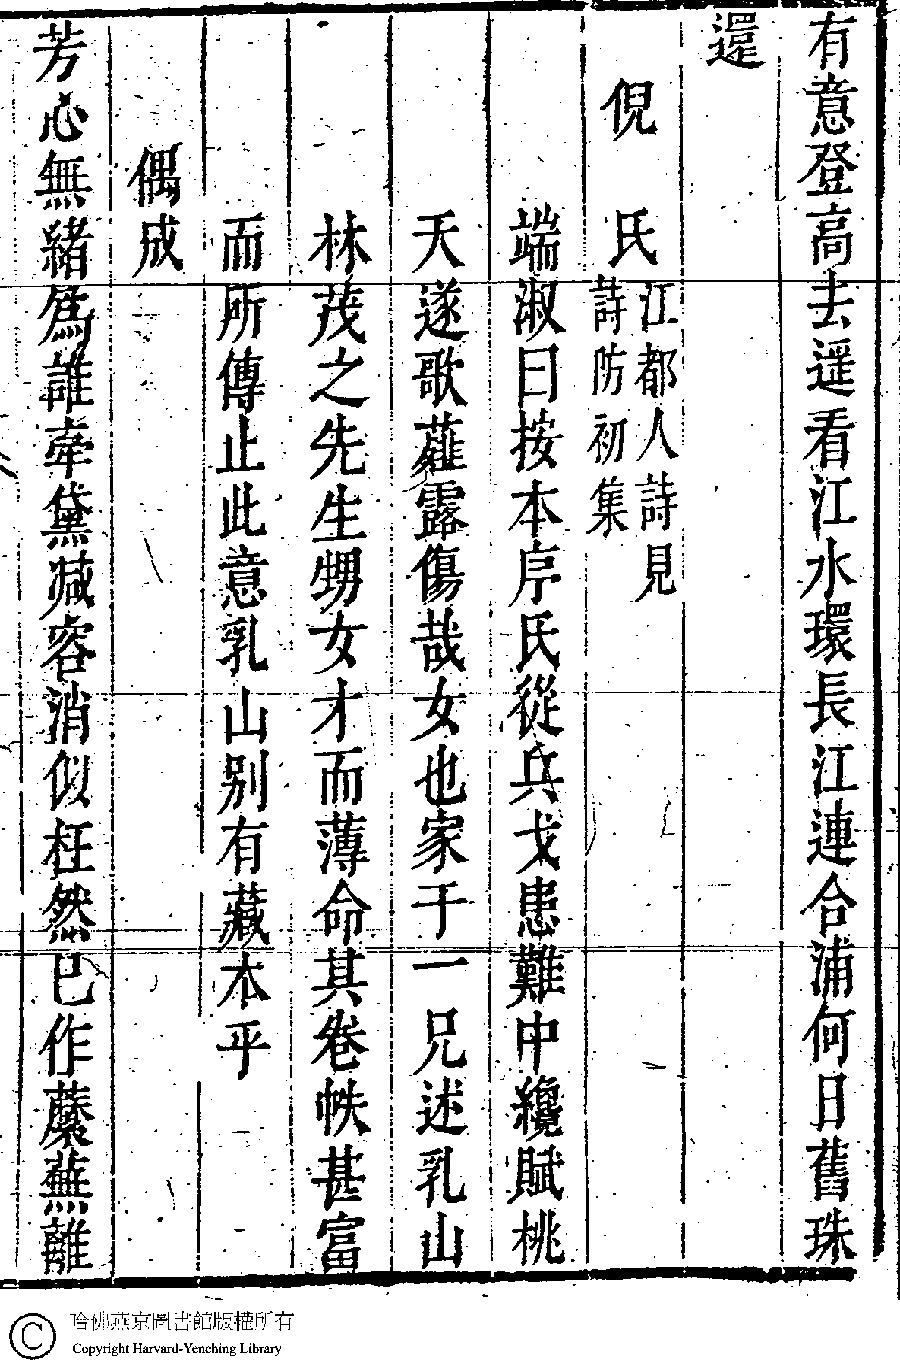 有意登高去遥看江水環長江連合浦何日舊珠
還
倪氏江都人詩見
詩防初集
端淑曰按本序氏從兵戈患難中纔賦桃
夭遂歌薤露傷哉女也家于一兄述乳山
林茂之先生甥女才而薄命其卷帙甚富
而所傳止此意乳山别有藏本乎
偶成
芳心無緒爲誰牽黛减容消似枉然已作蘪蕪離
哈佛燕京圖書館版權所有
Copyright Harvard-Yenching Library